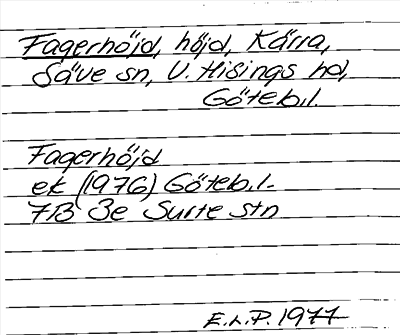 Fagerhöjd, höjd, Kärra,
Säve sn, V. Hisings hd,
Göteb.l.
Fagerhöjd
ek (1976) Göteb.l.
7B 3e Surte stn
E.L.P. 1977